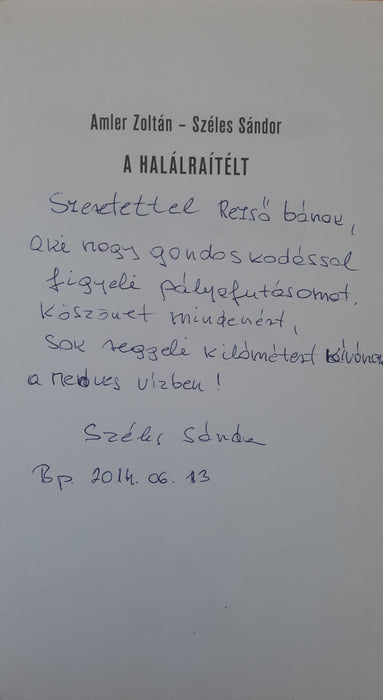 Amler Zoltán – Széles Sándor
A HALÁLRAÍTÉLT
Szeretettel Rezső bának,
aki nagy gondoskodással
figyeli pályafutásomat.
Köszönet mindenért,
sok reggeli kilométert kívánok
a nedves vízben!
Széles Sándor
Bp. 2014. 06. 13